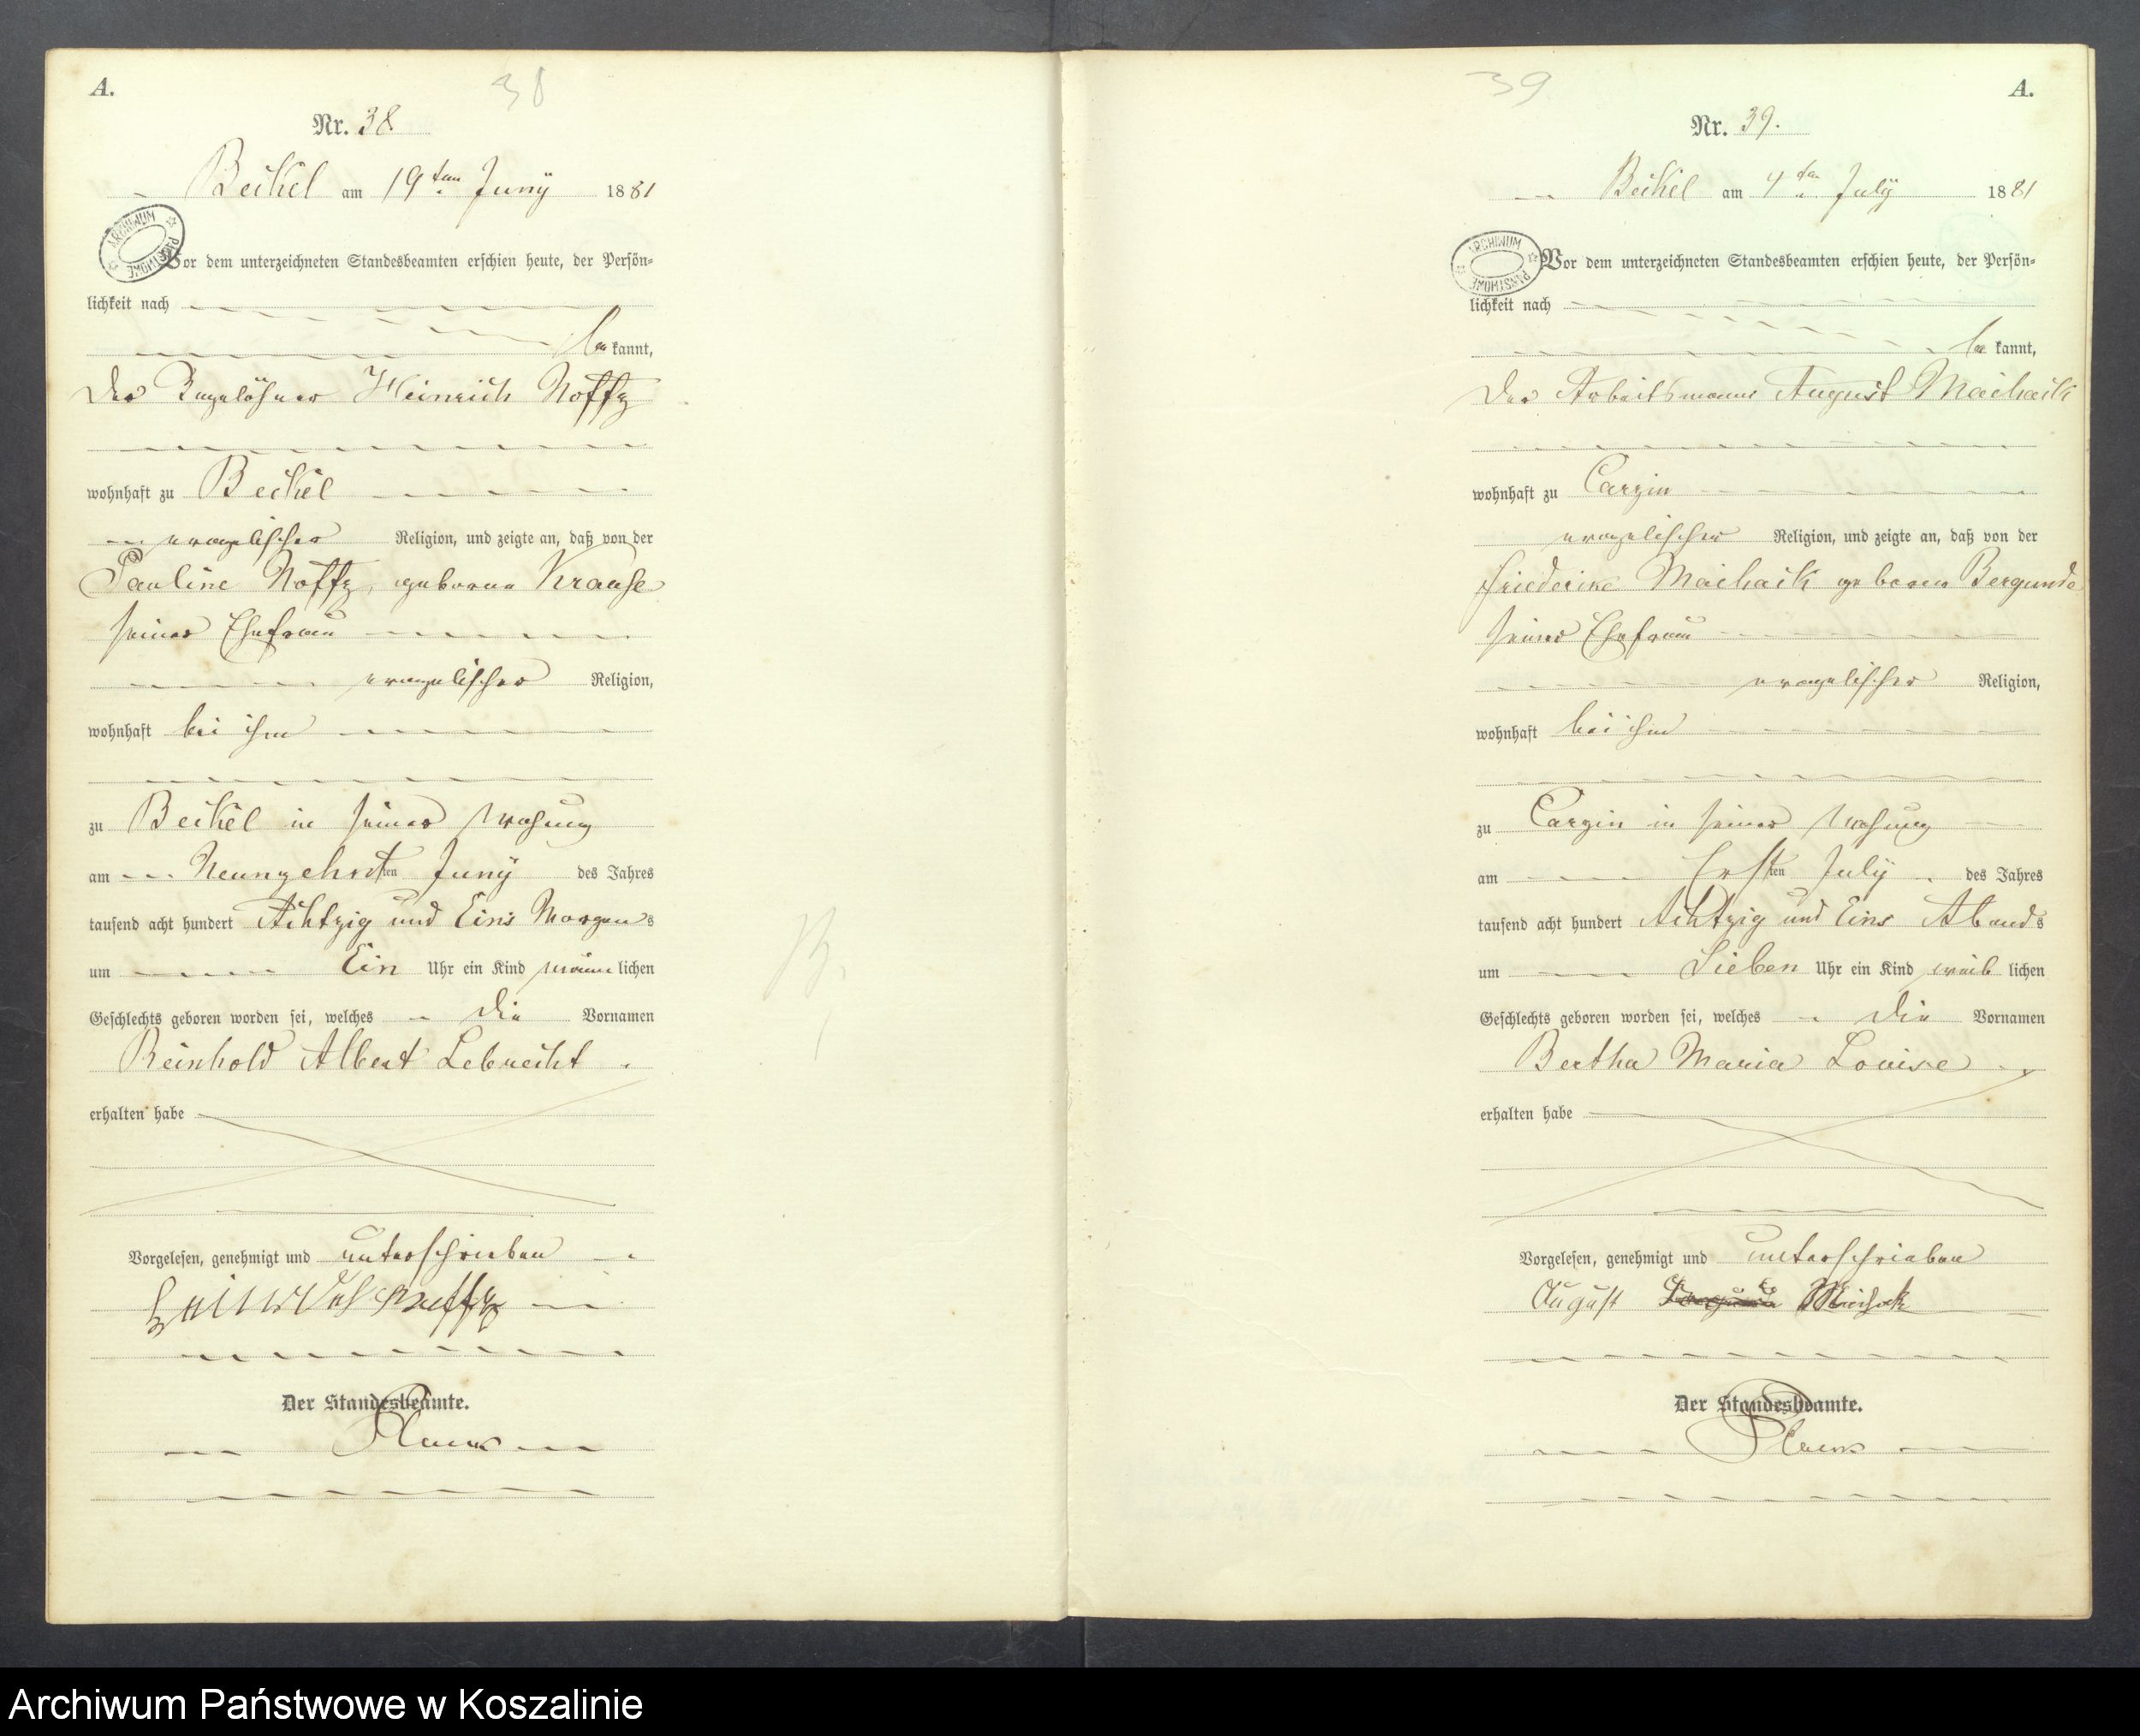 A.
38
Nr. 38
Beckel am 19ten Juny 1881
ARCHIWUM PAŃSTWOWE
Vor dem unterzeichneten Standesbeamten erschien heute, der Persön-
lichkeit nach
be kannt,
der Tagelöhner Heinrich Noffz
wohnhaft zu Beckel
evangelischer Religion, und zeigte an, daß von der
Pauline Noffz, geborne Krause
seiner Ehefrau
evangelischer Religion,
wohnhaft bei ihm
zu Beckel in seiner Wohung
am Neunzehnten Juny des Jahres
tausend acht hundert Achtzig und Eins Morgens
um Ein Uhr ein Kind männlichen
Geschlechts geboren worden sei, welches die Vornamen
Reinhold Albert Lebrecht
erhalten habe
Vorgelesen, genehmigt und unterschrieben
Heinrich Noffz
Der Standesbeamte.
39
A.
Nr. 39.
Beckel am 4ten July 1881
ARCHIWUM PAŃSTWOWE
Vor dem unterzeichneten Standesbeamten erschien heute, der Persön-
lichkeit nach
be kannt,
der Arbeitsmann August Machack
wohnhaft zu Carzin
evangelischer Religion, und zeigte an, daß von der
Friederike Machack geborne Bergunde
seiner Ehefrau
evangelischer Religion,
wohnhaft bei ihm
zu Carzin in seiner Wohung
am Ersten July des Jahres
tausend acht hundert Achtzig und Eins Abends
um Sieben Uhr ein Kind weib lichen
Geschlechts geboren worden sei, welches die Vornamen
Bertha Maria Louise
erhalten habe
Vorgelesen, genehmigt und unterschrieben
August
Der Standesbeamte.
Archiwum Państwowe w Koszalinie